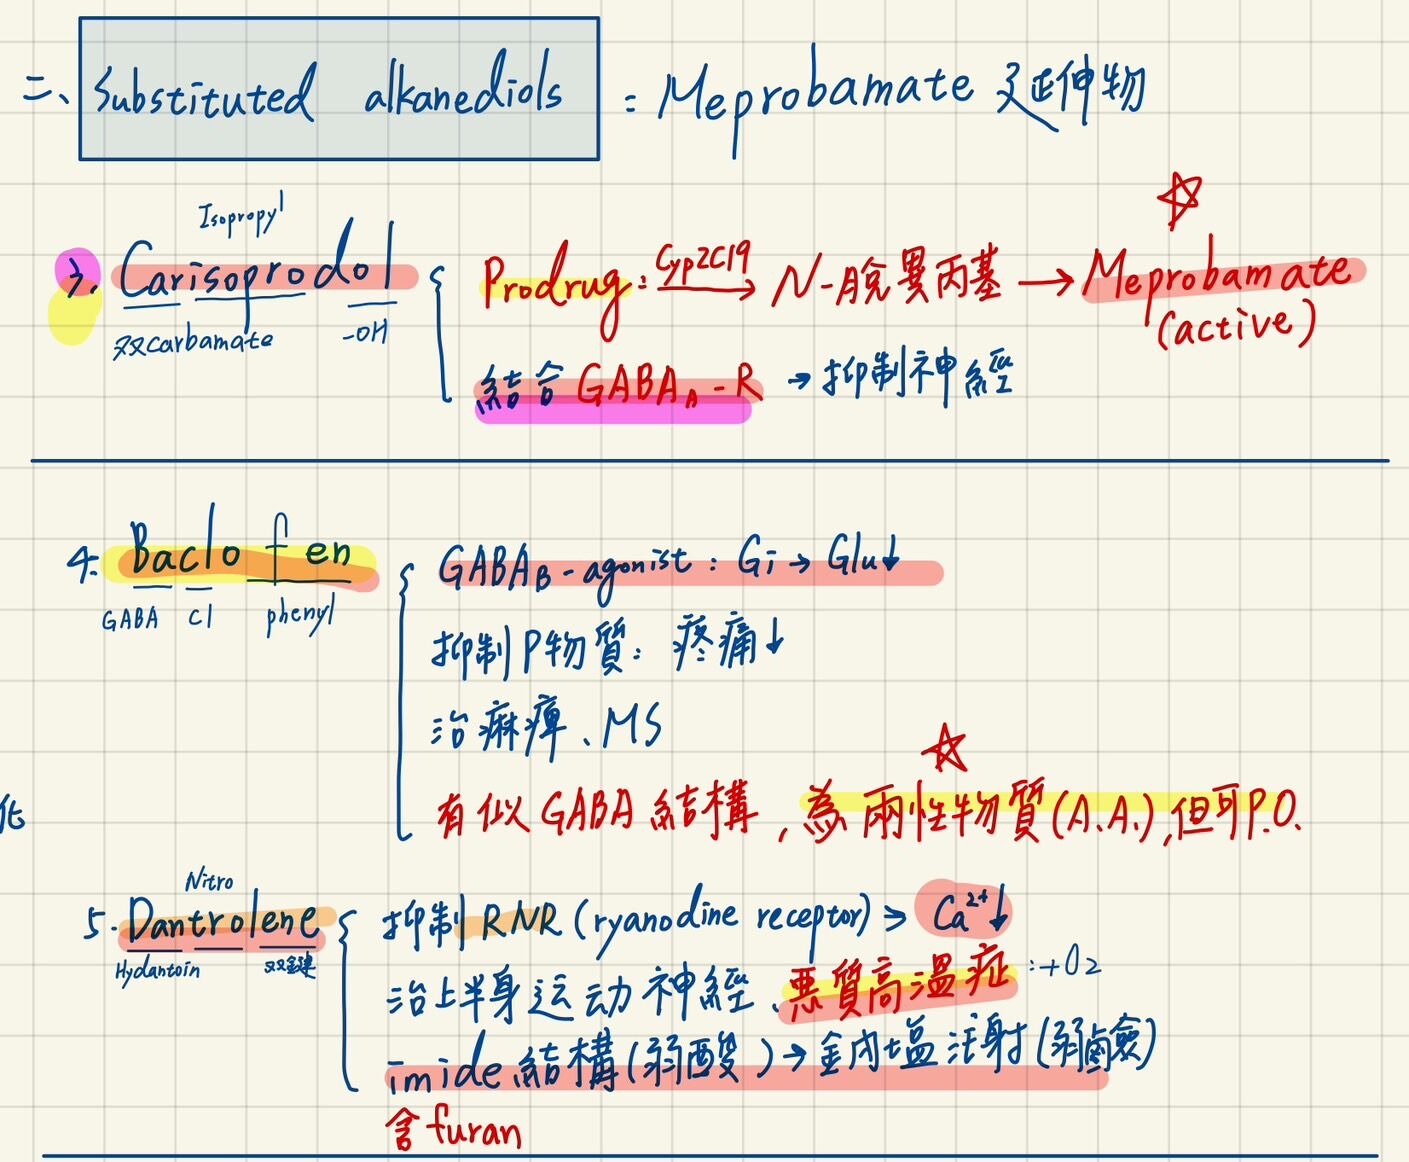 二、Substituted alkanediols : Meprobamate 延伸物
Isopropyl
3. Carisoprodol
双carbamate -OH
Prodrug: Cyp2C19 → N-脱異丙基 → Meprobamate
(active)
結合 GABA_A-R → 抑制神經
4. Baclofen
GABA Cl phenyl
GABA_B-agonist : Gi → Glu↓
抑制P物質: 疼痛↓
治痲痺、MS
有似GABA結構,為兩性物質(A.A.),但可P.O.
Nitro
5. Dantrolene
Hydantoin 双鍵
抑制RNR (ryanodine receptor) → Ca²⁺↓
治上半身运动神經、惡質高溫症 :+O2
imide結構(弱酸) → 鈉塩注射(弱鹼)
含furan
化